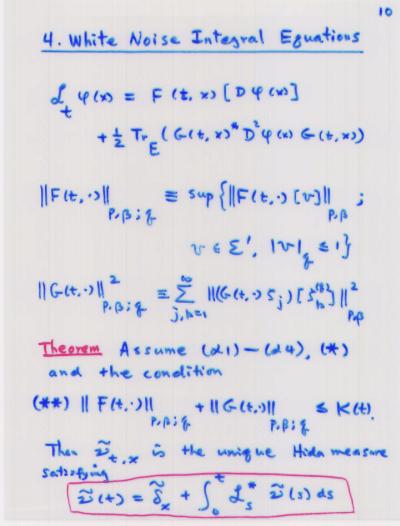 10
4. White Noise Integral Equations
ℒ_t φ(x) ≡ F(t, x)[Dφ(x)]
+ ½ Tr_E (G(t, x)* D² φ(x) G(t, x))
‖F(t, ·)‖_{p,β;q} ≡ sup {‖F(t, ·)[v]‖_{p,β} ;
v ∈ Σ′, |v|_q ≤ 1}
‖G(t, ·)‖²_{p,β;q} ≡ Σ_{j,k=1}^∞ ‖(G(t, ·) ζ_j)[ζ_k^{(q)}]‖²_{p,β}
Theorem Assume (α1)–(α4), (*)
and the condition
(**) ‖F(t, ·)‖_{p,β;q} + ‖G(t, ·)‖_{p,β;q} ≤ K(t).
Then ν̃_{t,x} is the unique Hida measure
satisfying
ν̃(t) = δ̃_x + ∫_0^t ℒ_s^* ν̃(s) ds